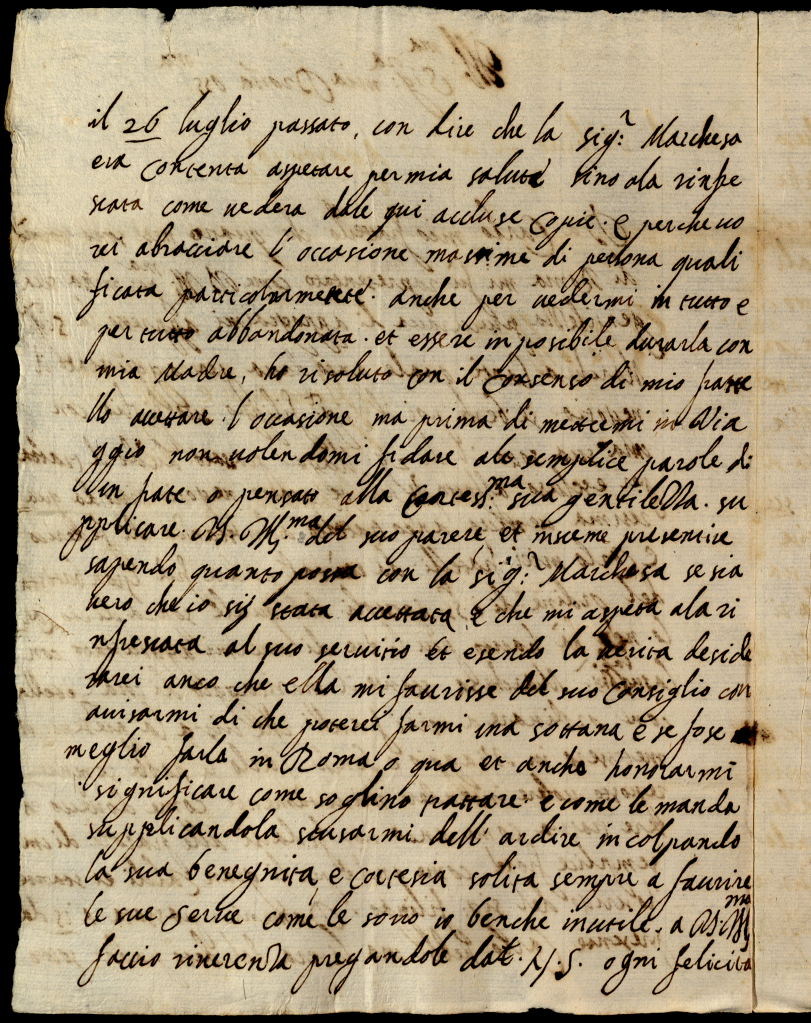 il 26 luglio passato, con dire che la sig.ʳ Marchesa
era contenta aspetare per mia salute sino ala rinfre
scata come vedera dale qui accluse copie. e perche vo
rei abracciare l'occasione massime di persona quali
ficata particolarmete. anche per vedermi in tutto e
per tutto abbandonata. et essere inposibile durarla con
mia Madre, ho risoluto con il consenso di mio frate
llo accettare l'occasione ma prima di mettermi in Via
ggio non volendomi fidare ale semplice parole di
un frate o pensato alla cortess.ᵐᵃ sua gentilezza. su
pplicare V. M.ᵐᵃ del suo parere, et insieme presentire
sapendo quanto possa con la sig.ʳ Marchesa se sia
vero che io sij stata accettata e che mi aspeta ala ri
nfrescata al suo servitio et esendo la verita deside
rarei anco che ella mi faurisse del suo consiglio con
avisarmi di che poterei farmi una sottana e se fose
meglio farla in Roma o qua et anche honorarmi
significare come soglino trattare e come le manda
supplicandola scusarmi dell'ardire incolpando
la sua benegnita, e cortesia solita sempre a faurire
le sue serve come le sono io benche inutile. a V. M.ᵐᵃ
faccio riverenza pregandole dal. N. S. ogni felicita